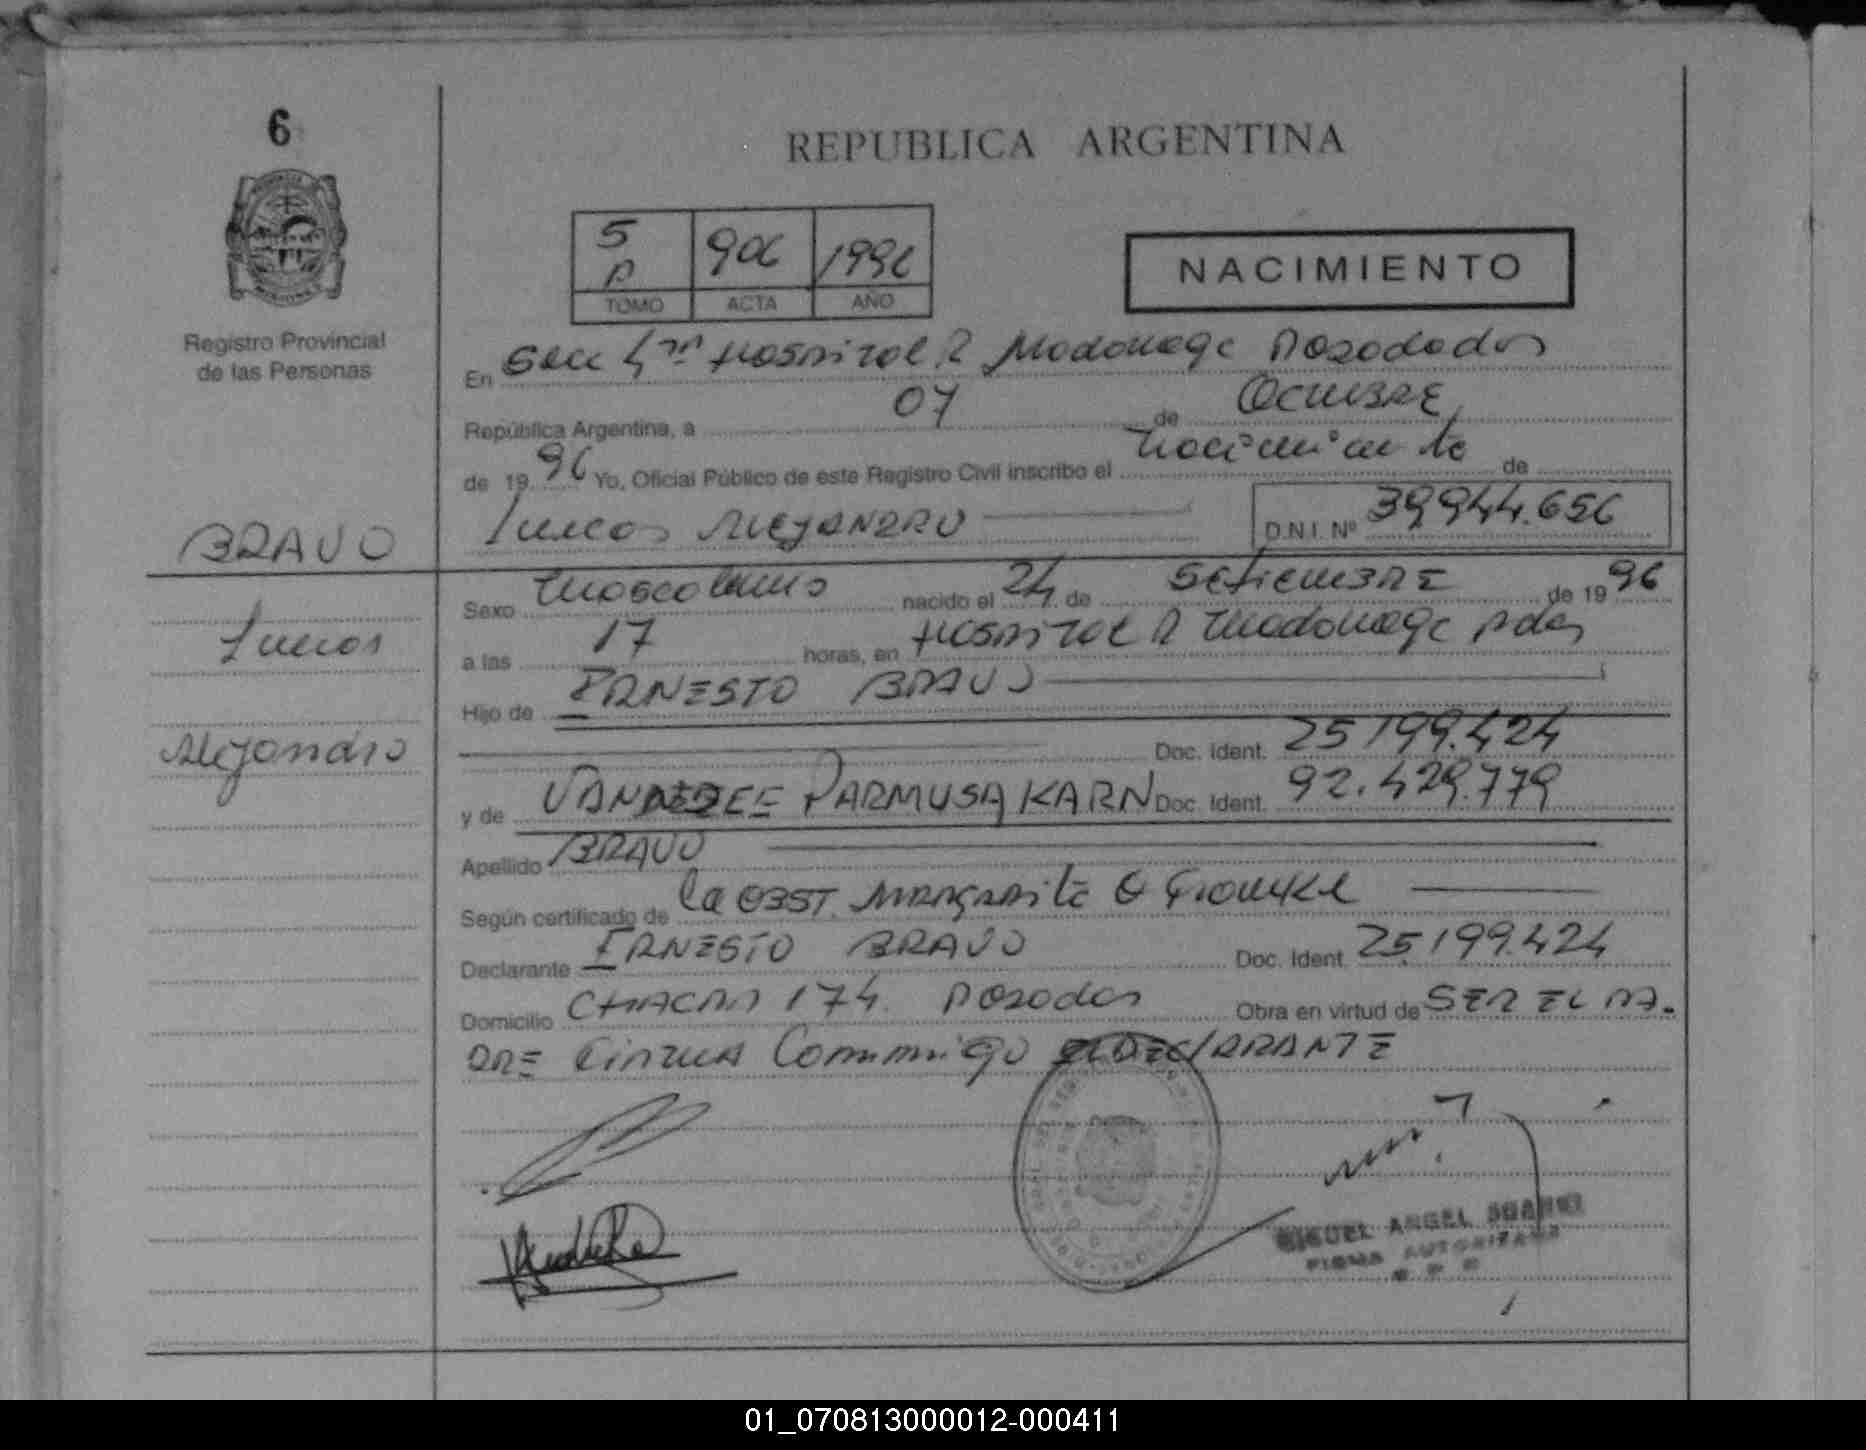 6
REPUBLICA ARGENTINA
5 P 906 1996
TOMO ACTA AÑO
NACIMIENTO
Registro Provincial
de las Personas
En Secc 4ta Hospital R Madariaga Posadas
República Argentina, a 07 de Octubre
de 1996 Yo, Oficial Público de este Registro Civil inscribo el nacimiento de
BRAVO
Lucas ALEJANDRO D.N.I. Nº 39.944.656
Lucas
Alejandro
Sexo masculino nacido el 24 de Setiembre de 1996
a las 17 horas, en Hospital R Madariaga Pdas
Hijo de ERNESTO BRAVO
Doc. Ident. 25.199.424
y de PARMUSA KARN Doc. Ident. 92.429.779
Apellido BRAVO
Según certificado de la OBST. MARGARITA
Declarante ERNESTO BRAVO Doc. Ident. 25.199.424
Domicilio CHACRA 174. Posadas Obra en virtud de SER EL PA-
DRE Firma Conmigo EL DECLARANTE
MIGUEL ANGEL
FIRMA AUTORIZADA
01_070813000012-000411